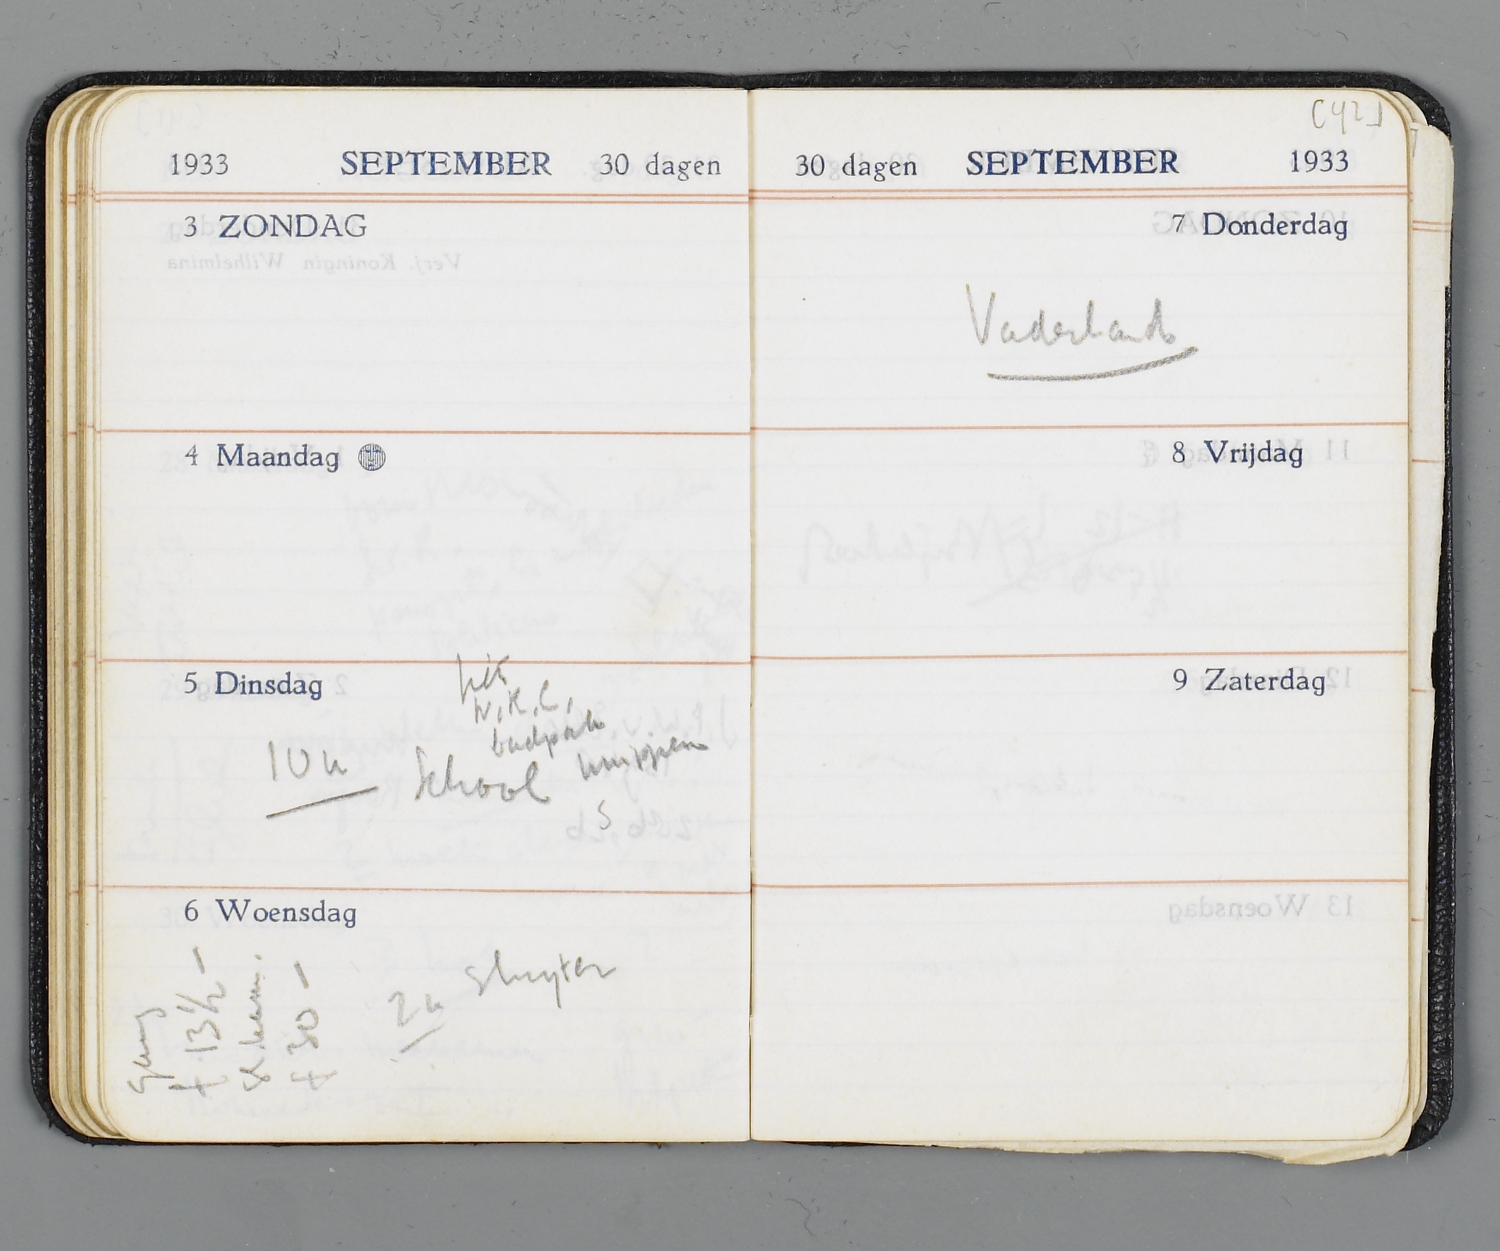 1933 SEPTEMBER 30 dagen
3 ZONDAG
4 Maandag
5 Dinsdag
N.K.C.
badpak
10 u School knippen
6 Woensdag
13½ -
30 -
2 u Sluyter
[42]
30 dagen SEPTEMBER 1933
7 Donderdag
Vaderland
8 Vrijdag
9 Zaterdag